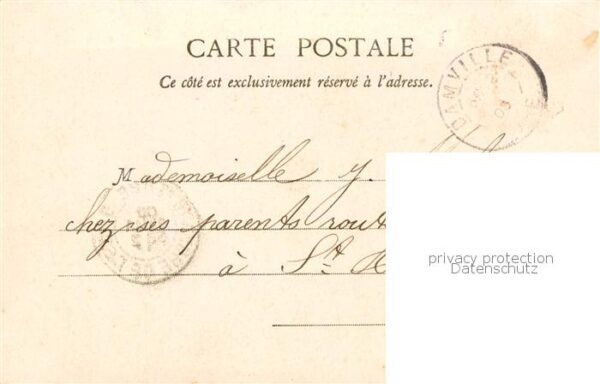 CARTE POSTALE
Ce côté est exclusivement réservé à l'adresse.
DAMVILLE
Mademoiselle Y.
chez ses parents rout
à St
privacy protection
Datenschutz